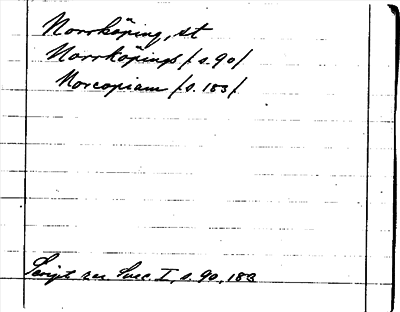 Norrköping, st
Norrköpings /s. 90/
Norcopiam /s. 183/
Script rer Suec. I, s. 90, 183